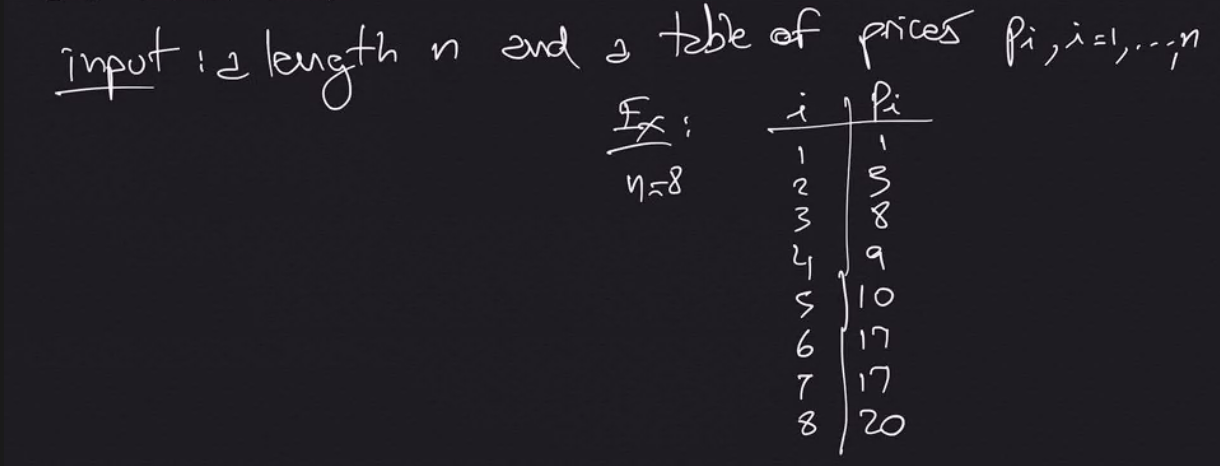 input : a length n and a table of prices Pi, i=1,...,n
Ex :
i Pi
n=8
1 1
2 5
3 8
4 9
5 10
6 17
7 17
8 20